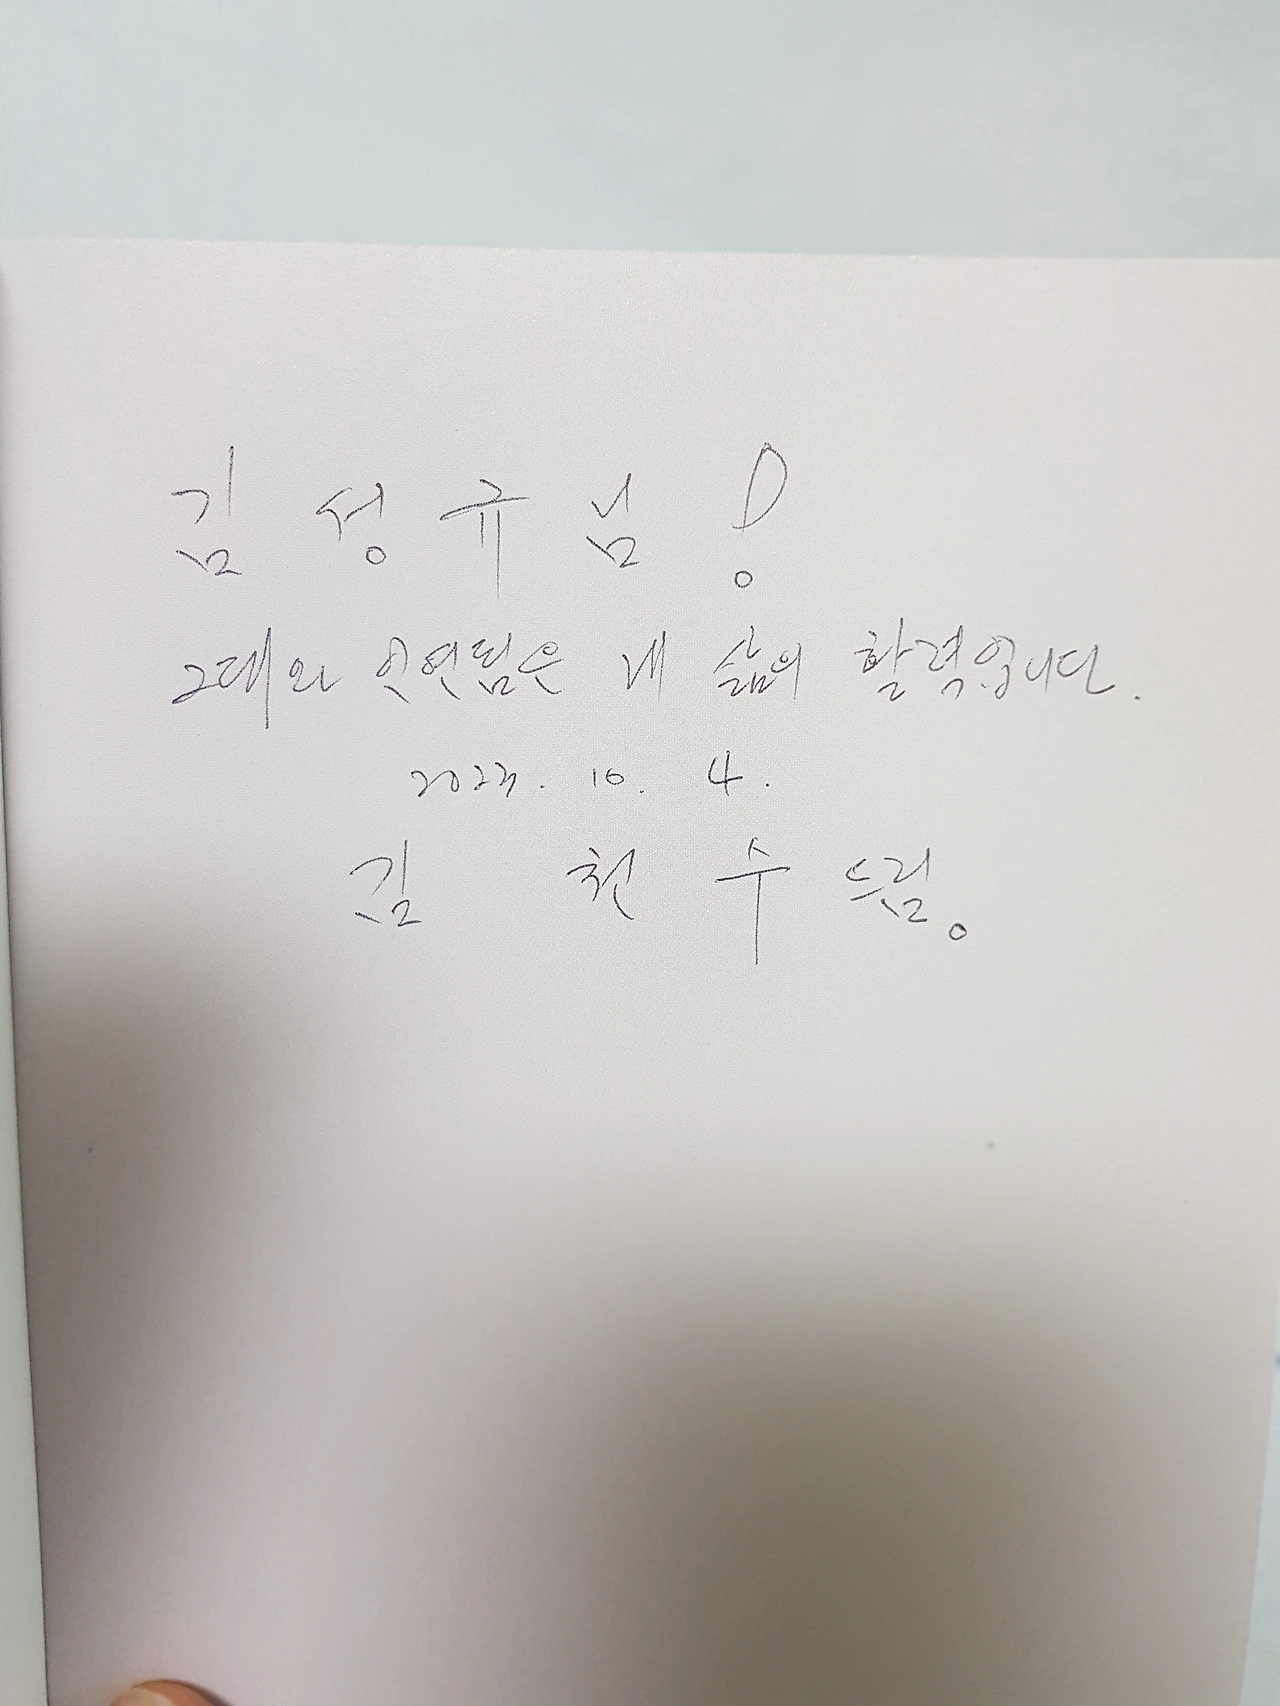 김 성 규 님!
그대와 인연됨은 내 삶의 활력입니다.
2023. 10. 4.
김 천 수 드림.